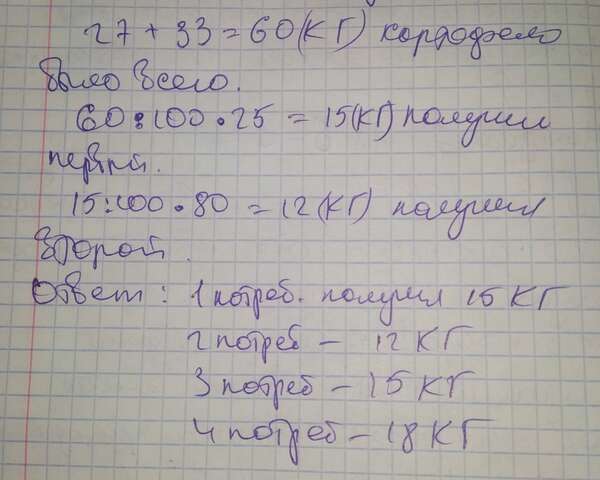 27 + 33 = 60 (КГ) картофеля
было всего.
60 : 100 • 25 = 15 (КГ) получил
первый.
15 : 100 • 80 = 12 (КГ) получил
второй.
Ответ : 1 потреб. получил 15 КГ
2 потреб – 12 КГ
3 потреб – 15 КГ
4 потреб – 18 КГ